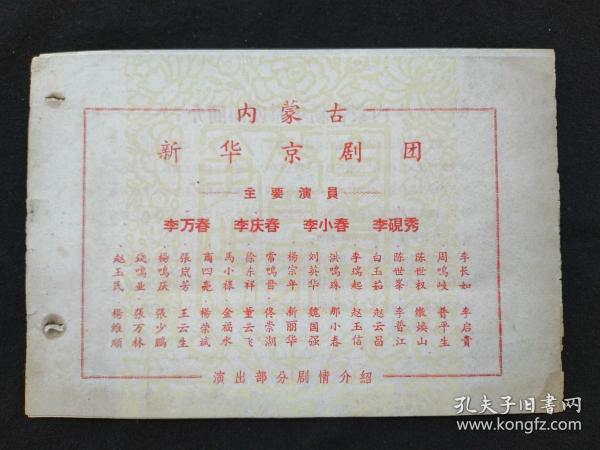 内蒙古
新华京剧团
主要演員
李万春 李庆春 李小春 李硯秀
李长如 李启貴
周鳴岐 普平生
陈世权 燉焕山
陈世峯 李普江
白玉茹 赵云昌
李瑞起 赵玉信
洪鳴珠 那小春
刘英华 魏国强
杨宗年 新丽华
常鳴晋 佟崇湖
徐东祥 董云飞
馬小祿 金福水
商四亮 杨荣斌
張岚芳 王云生
杨鳴庆 張少鵬
钱鳴业 張万林
赵玉民 杨維順
演出部分剧情介紹
孔夫子旧书网
www.kongfz.com